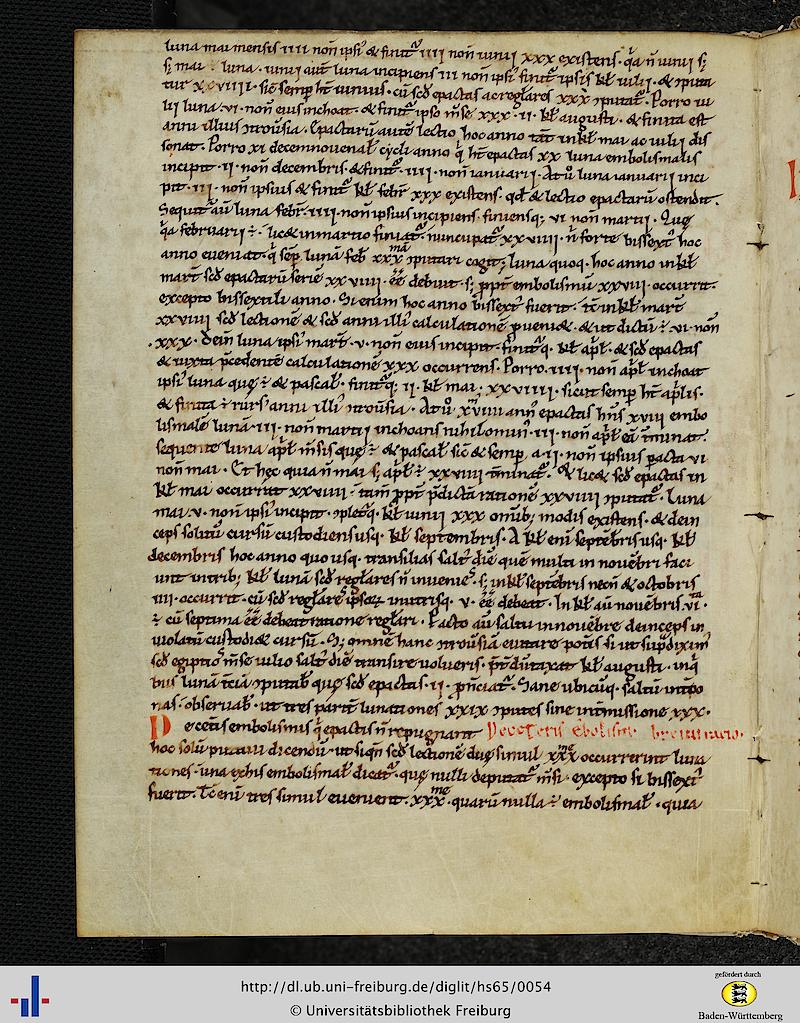 luna mai mensis iiii non ipsi & finit iiii non iunii xxx existens. qa n iunii s;
s; mai luna. iunii aut luna incipiens iii non ipsi finit ipsis kl iulii. & iputa
tur xxviiii. sic semp ht iunius. cu scd epactas ac reglares xxx iputat. Porro iu
lii luna. vi. non eius inchoat. & finit ipso mse xxx. ii. kl augusti. & finita est
anni illius inousia. Epactaru aute lectio hoc anno tant in kl mai ac iulii dis
sonat. Porro xi decemnouenal cycli anno q ht epactas xx luna embolismalis
incipit. ii. non decembris & finit. iiii. non ianuarii. At u luna ianuarii inci
pit. iii. non ipsius & finit kl febr xxx existens. qd & lectio epactaru ostendit.
Sequit au luna febr. iiii. non ipsius incipiens. finiensq; vi non martii. Que
qa februarii e. lic& in martio finiat. nuncupat xxviiii. n forte bissext hoc
anno eueniat. q sep luna feb xxx ma iputari cogit; luna quoq. hoc anno in kl
mart scd epactaru serie xxviiii. ee debuit. s; ppt embolismu xxviii. occurrit.
excepto bissextili anno. Si enim hoc anno bissext fuerit. tc in kl mart
xxviiii scd lectione & scd anni illi calculatione pueni&. & ut dictu e. vi. non
xxx. dein luna ipsi mart. v. non eius incipit. finitq. kl apl. & scd epactas
& iuxta pcedente calculatione xxx occurrens. Porro. iiii. non apl inchoat
ipsi luna que e & pascal. finitq; ii. kl mai. xxviiii. sicut semp ht aplis.
& finita e rurs anni illi inousia. At u. xviiii ann epactas hns xviii embo
lismale luna. iii. non martii inchoans nihilomin. iii. non apl ea tminat.
sequente luna apl msis que e & pascal sic & semp a. ii. non ipsius pacta vi
non mai. Et hec quia n mai s; apl e xxviiii tminat. & lic& scd epactas in
kl mai occurrat xxviiii. tam ppt pdicta ratione xxviiii iputat. Luna
mai. v. non ipsi incipit. ipletq. kl iunii xxx omib; modis existens. & dein
ceps solitu cursu custodiens usq. kl septembris. A kl eni septebris usq. kl
decembris hoc anno quo usq. transilias salt die que multi in nouebri faci
unt in trib; kl luna scd reglares n inuenies. s; in kl septebris necn & octobris
iiii. occurrit. cu scd reglare ipsa in utrisq. v. ee debeat. In kl au nouebris vi ta.
e cu septima ee debeat ratione reglari. Facto au saltu in nouebre deinceps in
uiolatu custodi& cursu. S; omne hanc inousia euitare potis si ut supdixim
scd egiptios mse iulio salt die transire uolueris. pt dutaxat kl augusti. in q
bus luna tcia iputab que scd epactas. ii. pnciat. Sane ubicuq. saltu intpo
nas. obseruab. ut tres parit lunationes xxix iputes sine intmissione xxx.
De cetis embolismis q epactis n repugnant De ceteris ebolismis breuiario.
hoc solu putaui dicendu. ut siqn scd lectione due simul xxx occurrerint luna
tiones. una ex his embolismal dicat. que nulli deputat msi. excepto si bissext
fuerit. Tc eni tres simul euenient. xxx me. quaru nulla e embolismal. quia
http://dl.ub.uni-freiburg.de/diglit/hs65/0054
© Universitätsbibliothek Freiburg
gefördert durch
Baden-Württemberg